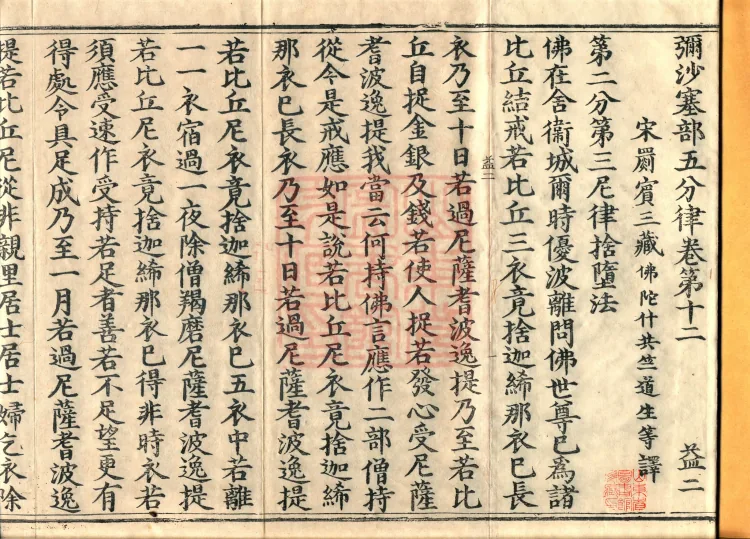 彌沙塞部五分律卷第十二 益二
宋罽賓三藏佛陀什共竺道生等譯
第二分第三尼律捨墮法
佛在舍衛城爾時優波離問佛世尊已為諸
比丘結戒若比丘三衣竟捨迦絺那衣已長
衣乃至十日若過尼薩耆波逸提乃至若比
益二
丘自捉金銀及錢若使人捉若發心受尼薩
耆波逸提我當云何持佛言應作二部僧持
從今是戒應如是說若比丘尼衣竟捨迦絺
那衣已長衣乃至十日若過尼薩耆波逸提
若比丘尼衣竟捨迦絺那衣已五衣中若離
一一衣宿過一夜除僧羯磨尼薩耆波逸提
若比丘尼衣竟捨迦絺那衣已得非時衣若
須應受速作受持若足者善若不足望更有
得處令具足成乃至一月若過尼薩耆波逸
提若比丘尼從非親里居士居士婦乞衣除